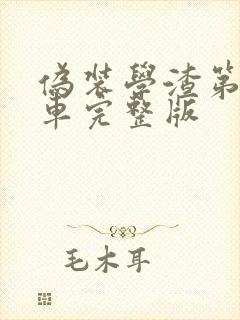 偽裝學渣第
車完整版
毛木耳